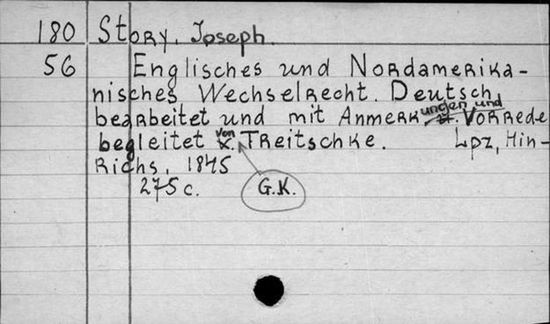 180 Story, Joseph.
56 Englisches und Nordamerika-
nisches Wechselrecht. Deutsch
bearbeitet und mit Anmerkungen und Vorrede
begleitet von Treitschke. Lpz, Hin-
richs, 1845
275 c. G.K.